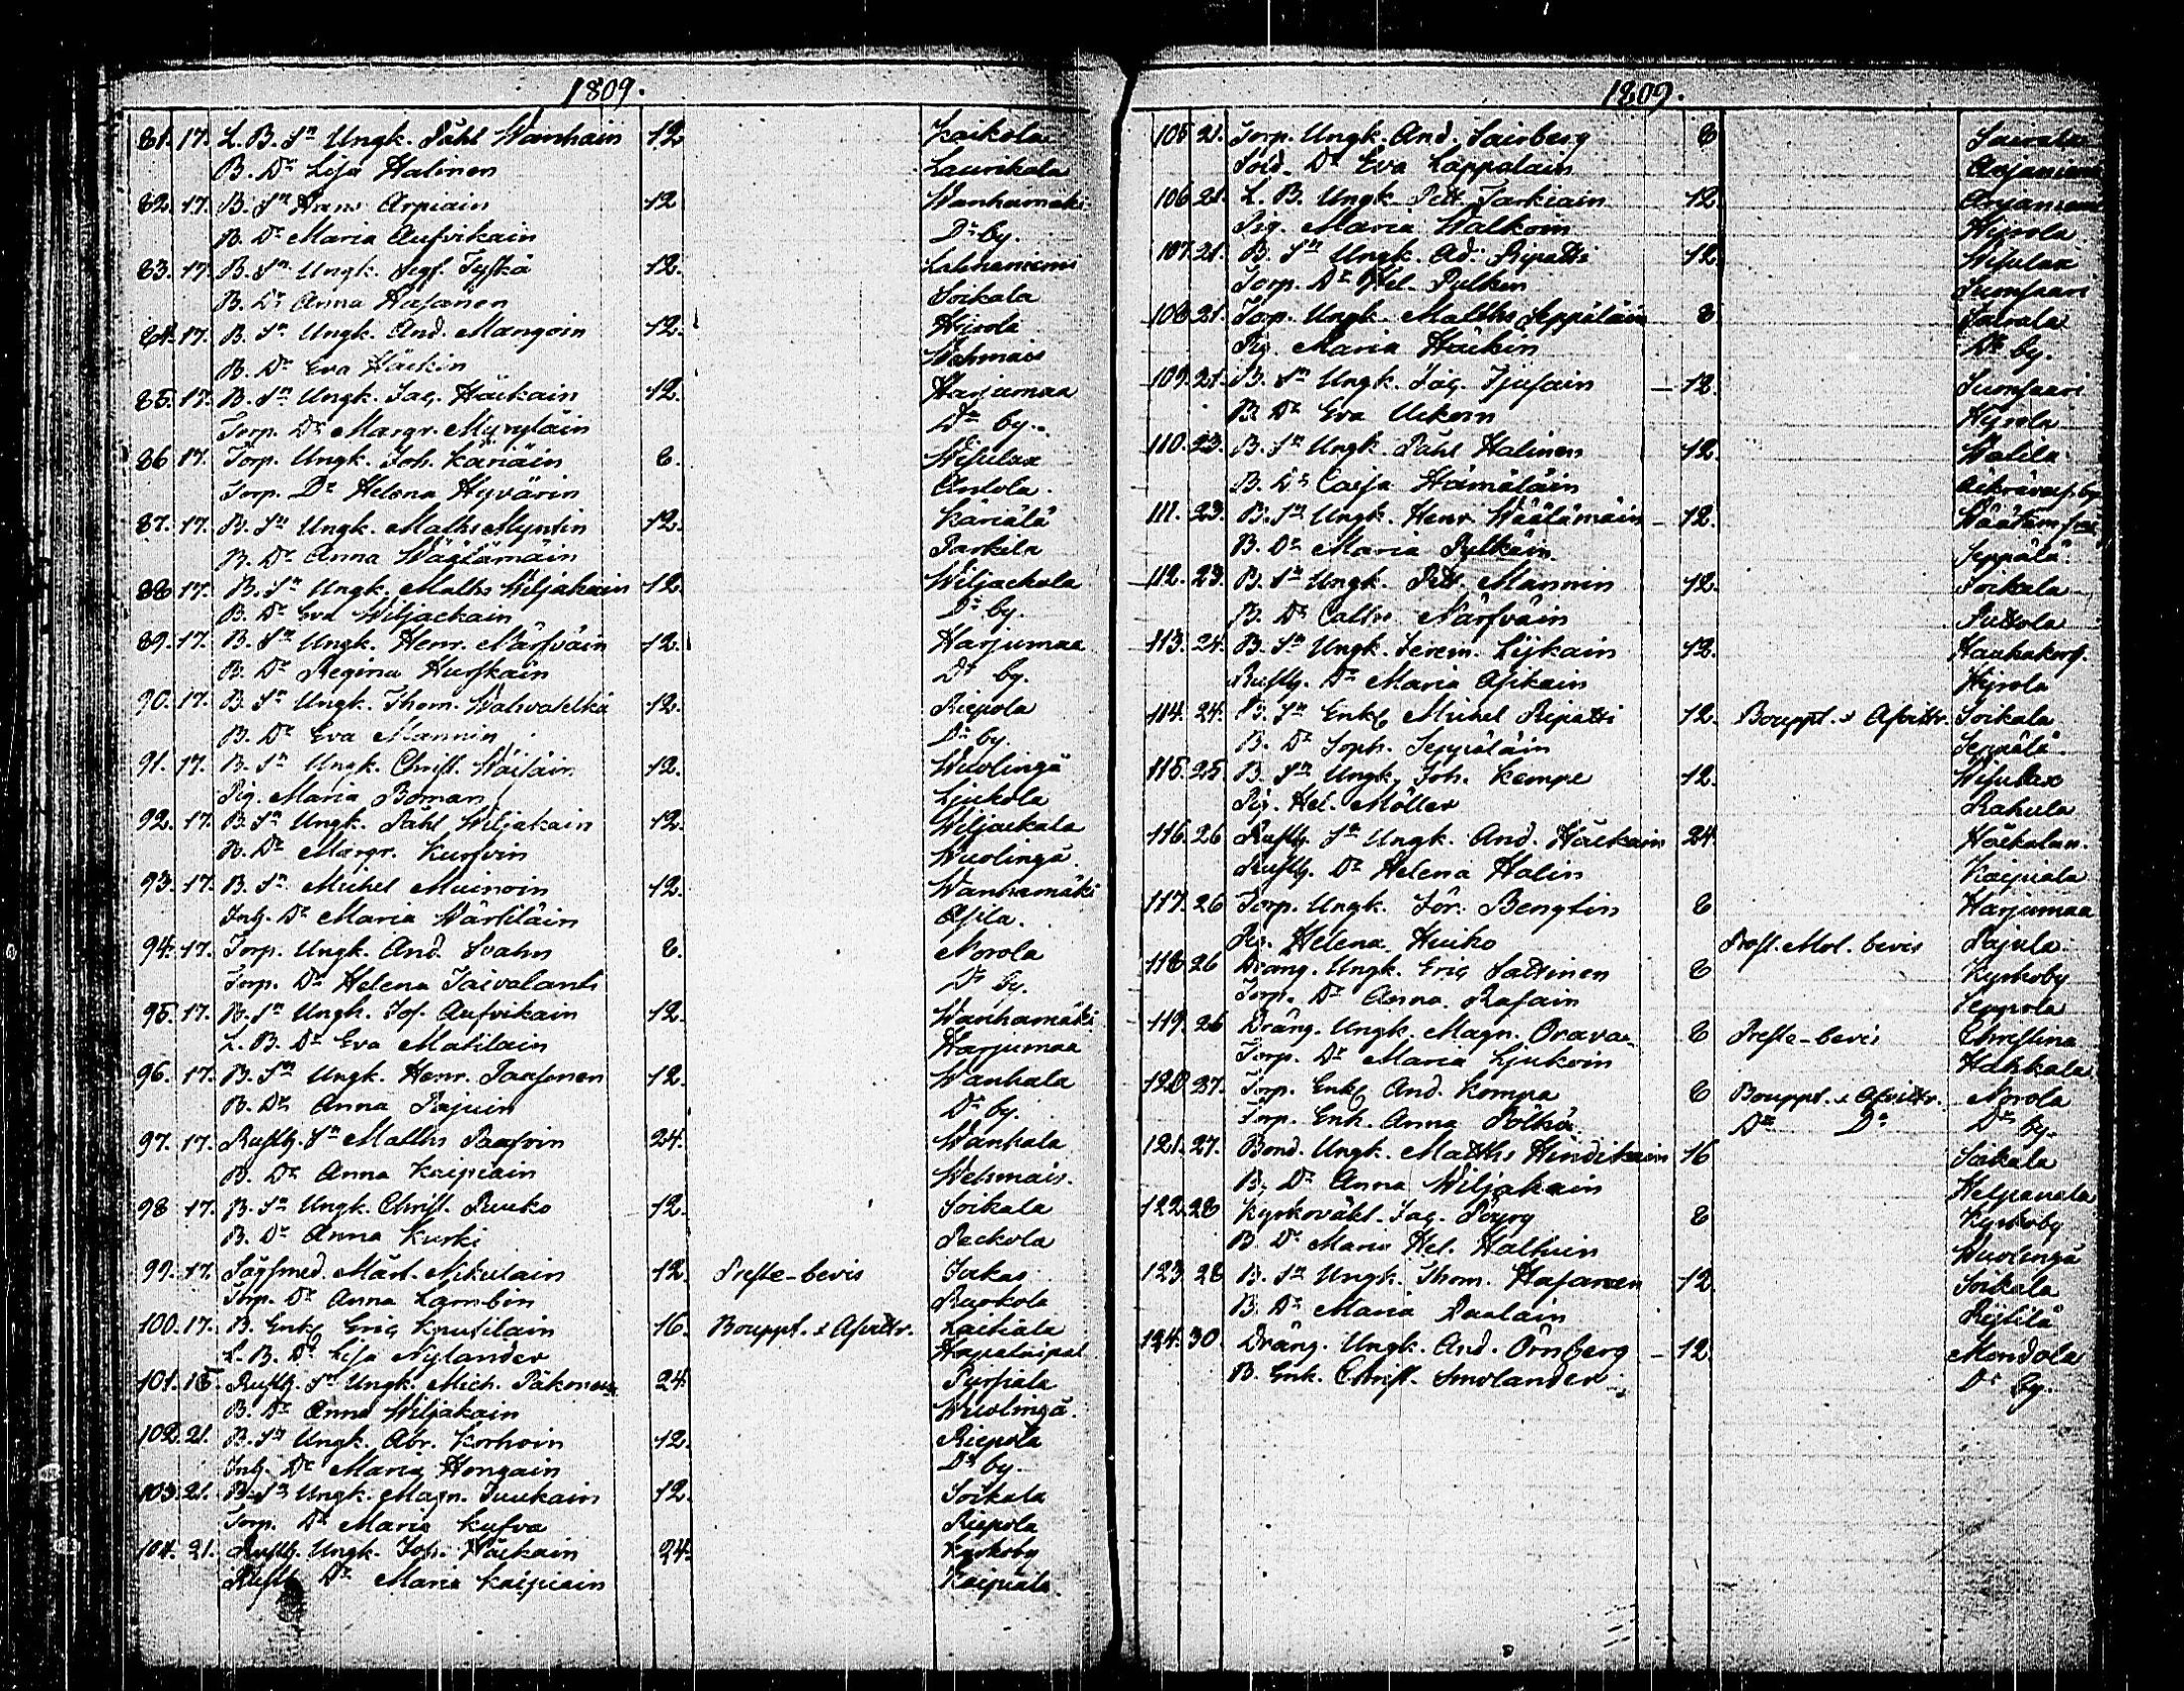 1809.
81. 17. L. B. Sn Ungk. Påhl Wanhain 12 Kaikola
B. Dr Lisa Halinen Laurikala
82. 17. B. Sn Hans Arpiain 12 Wanhamäki
B. Dr Maria Aufvikain Dr by.
83. 17. B. Sn Ungk. 12.
B. Dr Anna Hasanen Soikala
84. 17. B. Sn Ungk. And. Mangoin 12. Hyrola
B. Dr Eva Häikin Wehmais
85. 17. B. Sn Ungk. Jac. Häikäin 12. Harjumaa
Torp. Dr Margr. Myryläin Dr by.
86 17. Torp. Ungk. Joh. Käriäin 8. Wisulax
Torp. Dr Helena Hyvärin Anlola
87. 17. B. Sn Ungk. Maths Myntin 12. Käriälä
B. Dr Anna Wäätämäin Parkila
88 17. B. Sn Ungk. Maths Wiljakain 12 Wiljackala
B. Dr Eva Wiljackain Dr by.
89. 17. B. Sn Ungk. Henr. Närfväin 12. Harjumaa
B. Dr Regina Hurskain Dr by.
90. 17. B. Sn Ungk. Thom. Wahvaselkä 12. Riepola
B. Dr Eva Mannin Dr by.
91. 17. B. Sn Ungk. Christ. Wäiläin 12. Wuolingä
Pig. Maria Boman Ljukola
92. 17. B. Sn Ungk. Påhl Wiljakain 12. Wiljackala
B. Dr Margr. Kurfvin Wuolingä
93. 17. B. Sn Michel Muinoin 12. Wanhamäki
Inh. Dr Maria Wärtiläin Asila.
94. 17. Torp. Ungk. And. Svahn 8. Norola
Torp. Dr Helena Taivalanti Dr by.
95. 17. B. Sn Ungk. Jos. Aufvikain 12. Wanhamäki
L. B. Dr Eva Matilain Harjumaa
96. 17. B. Sn Ungk. Henr. Paasonen 12. Wanhala
B. Dr Anna Pajuin Dr by.
97. 17. Rusth. Sn Matths Paasoin 24. Wanhala
B. Dr Anna Kaipiain Wehmais.
98 17. B. Sn Ungk. Christ. Puuko 12. Soikala
B. Dr Anna Kurki Peckola
99. 17. Mårt. Nikulain 12. Preste-bevis Jukas
Torp. Dr Anna Lambin Ruokola
100. 17. B. Enkl Eric Knutilain 16. Bouppt. & Afvittr.
L. B. Dr Lisa Nylander
101. 18. Rusth. Sn Ungk. Mich. Påkonen 24.
B. Dr Anna Wiljakain Wuolingä.
102. 21. B. Sn Ungk. Abr. Korhoin 12. Riepola
Inh. Dr Maria Hongain Dr by.
103. 21. B. Sn Ungk. Magn. Tuukain 12. Soikala
Torp. Dr Maria Kufva Riepola
104. 21. Rusth. Ungk. Joh. Häikäin 24. Kyrkoby
Rusth. Dr Maria Kaipiain Kaipiala.
1809.
105 21. Torp. Ungk. And. Sairberg 8 Sairala
Sold. Dr Eva Lappalain Anjaniemi
106 21. L. B. Ungk. Pett. Tarkiain 12. Anjaniemi
Pig. Maria Walkoin Hyrola
107. 21. B. Sn Ungk. Ad. Ripatti 12. Wisulax
Torp. Dr Hel. Pulkin Sumsaari
108 21. Torp. Ungk. Matths Seppäläin 8 Sairala
Pig. Maria Häikin Dr by.
109. 21. B. Sn Ungk. Jac. 12. Sumsaari
B. Dr Eva Uckoin Hyrola
110. 23. B. Sn Ungk. Påhl Halinen 12. Walila
B. Dr Caisa Hämäläin
111. 23. B. Sn Ungk. Henr. Wäätämäin 12.
B. Dr Maria Pulkäin Seppälä
112. 23. B. Sn Ungk. Pett. Mannin 12. Soikala
B. Dr Cathr. Närfväin Puttola
113. 24. B. Sn Ungk. Jerem. Lijkain 12. Hauhakorf.
Rusth. Dr Maria Asikain Hyrola
114. 24. B. Sn Enkl Michel Ripatti 12. Bouppt. & Afvittr. Soikala
B. Dr Soph. Seppäläin Seppälä.
115. 25. B. Sn Ungk. Joh. Kempe 12. Wisulax
Pig. Hel. Möller Rahula
116. 26 Rusth. Sn Ungk. And. Häikäin 24.
Rusth. Dr Helena Halin Kaipiala
117. 26 Torp. Ungk. Bengtin 8 Harjumaa
Pig. Helena Huiko bevis Pajula
118 26 Dräng. Ungk. Eric Sattinen 8 Kyrkoby
Torp. Dr Anna Rasain
119. 26 Dräng. Ungk. Magn. Orava 8 Preste-bevis Christina
Torp. Dr Maria Ljukoin
120 27. Torp. Enkl And. Kompa 8 Bouppt. & Afvittr. Norola
Torp. Enk. Anna Pölkä Dr Dr Dr by.
121. 27. Bond. Ungk. Matths Hindikain 16 Soikala
B. Dr Anna Wiljakain
122. 28 Kyrkoväkt. Jac. Poyry 8 Kyrkoby
B. Dr Maria Hel. Halluin Wuolingä
123. 28 B. Sn Ungk. Thom. Hasanen 12. Soikala
B. Dr Maria Paulain
124. 30. Dräng. Ungk. And. Örnberg 12. Mondola
B. Enk. Christ. Smolander Dr by.